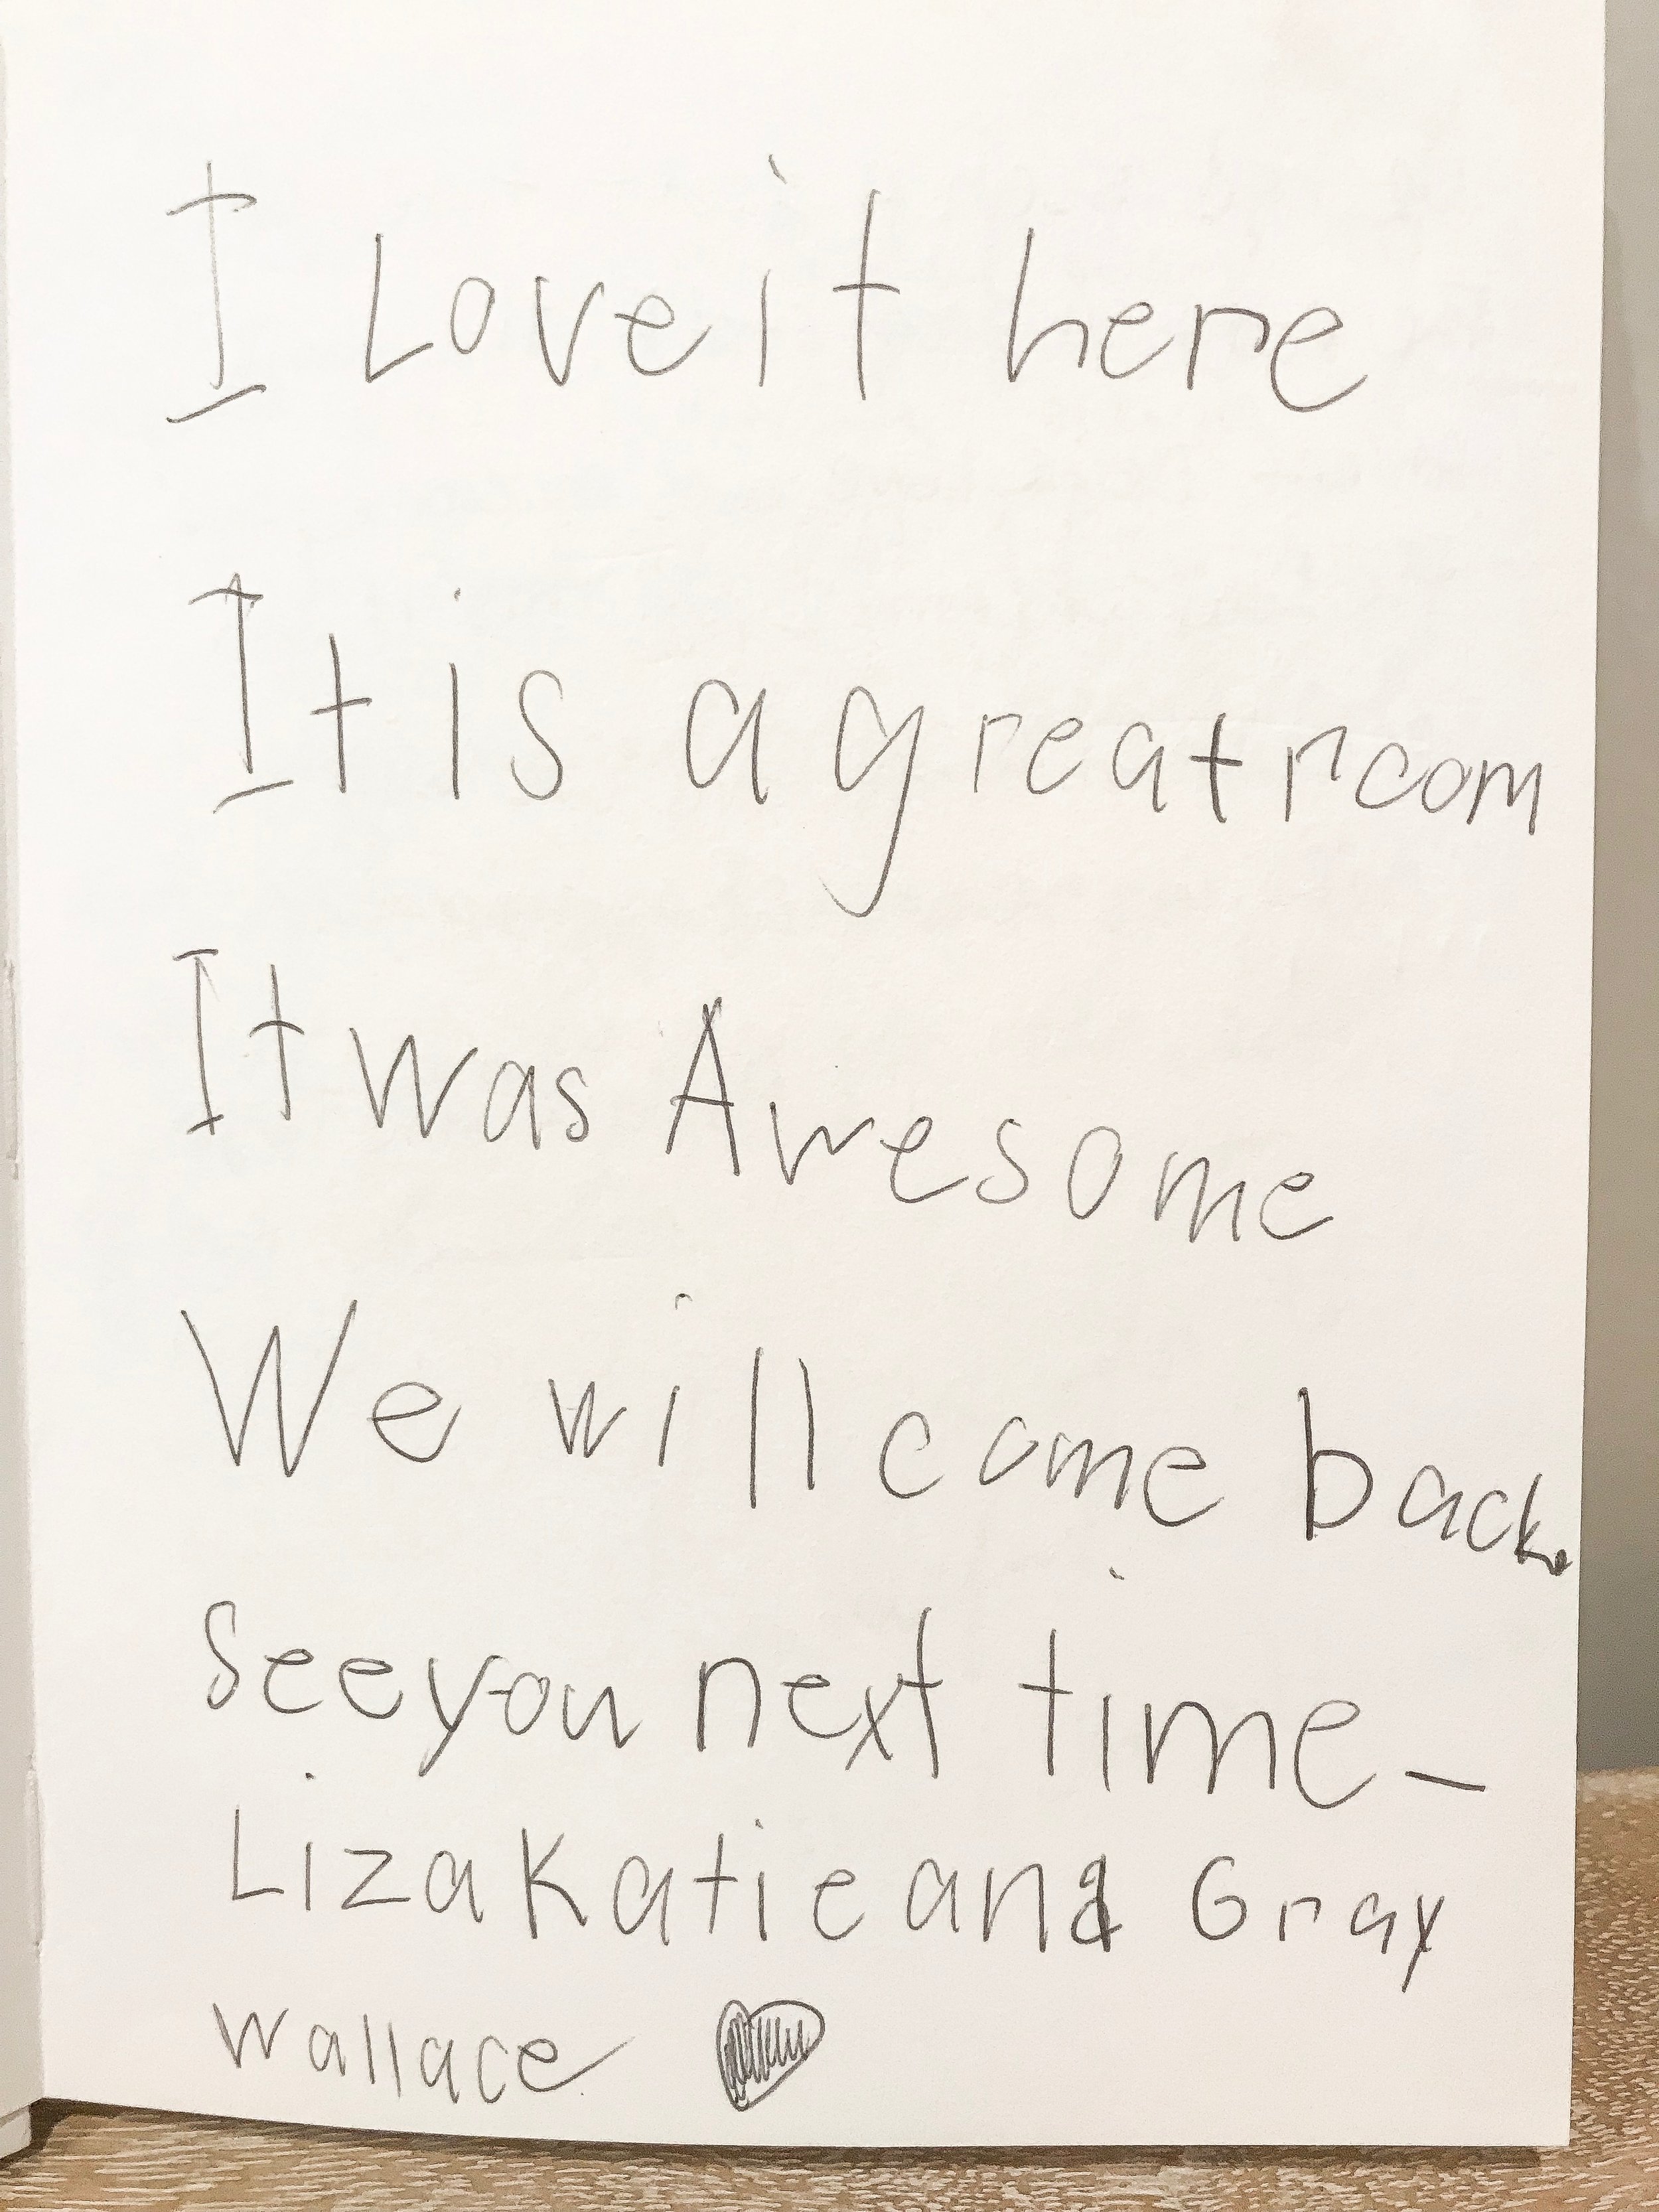 I Love it here
It is a great room
It was Awesome
We will come back.
See you next time -
Liza Katie and Gray
Wallace